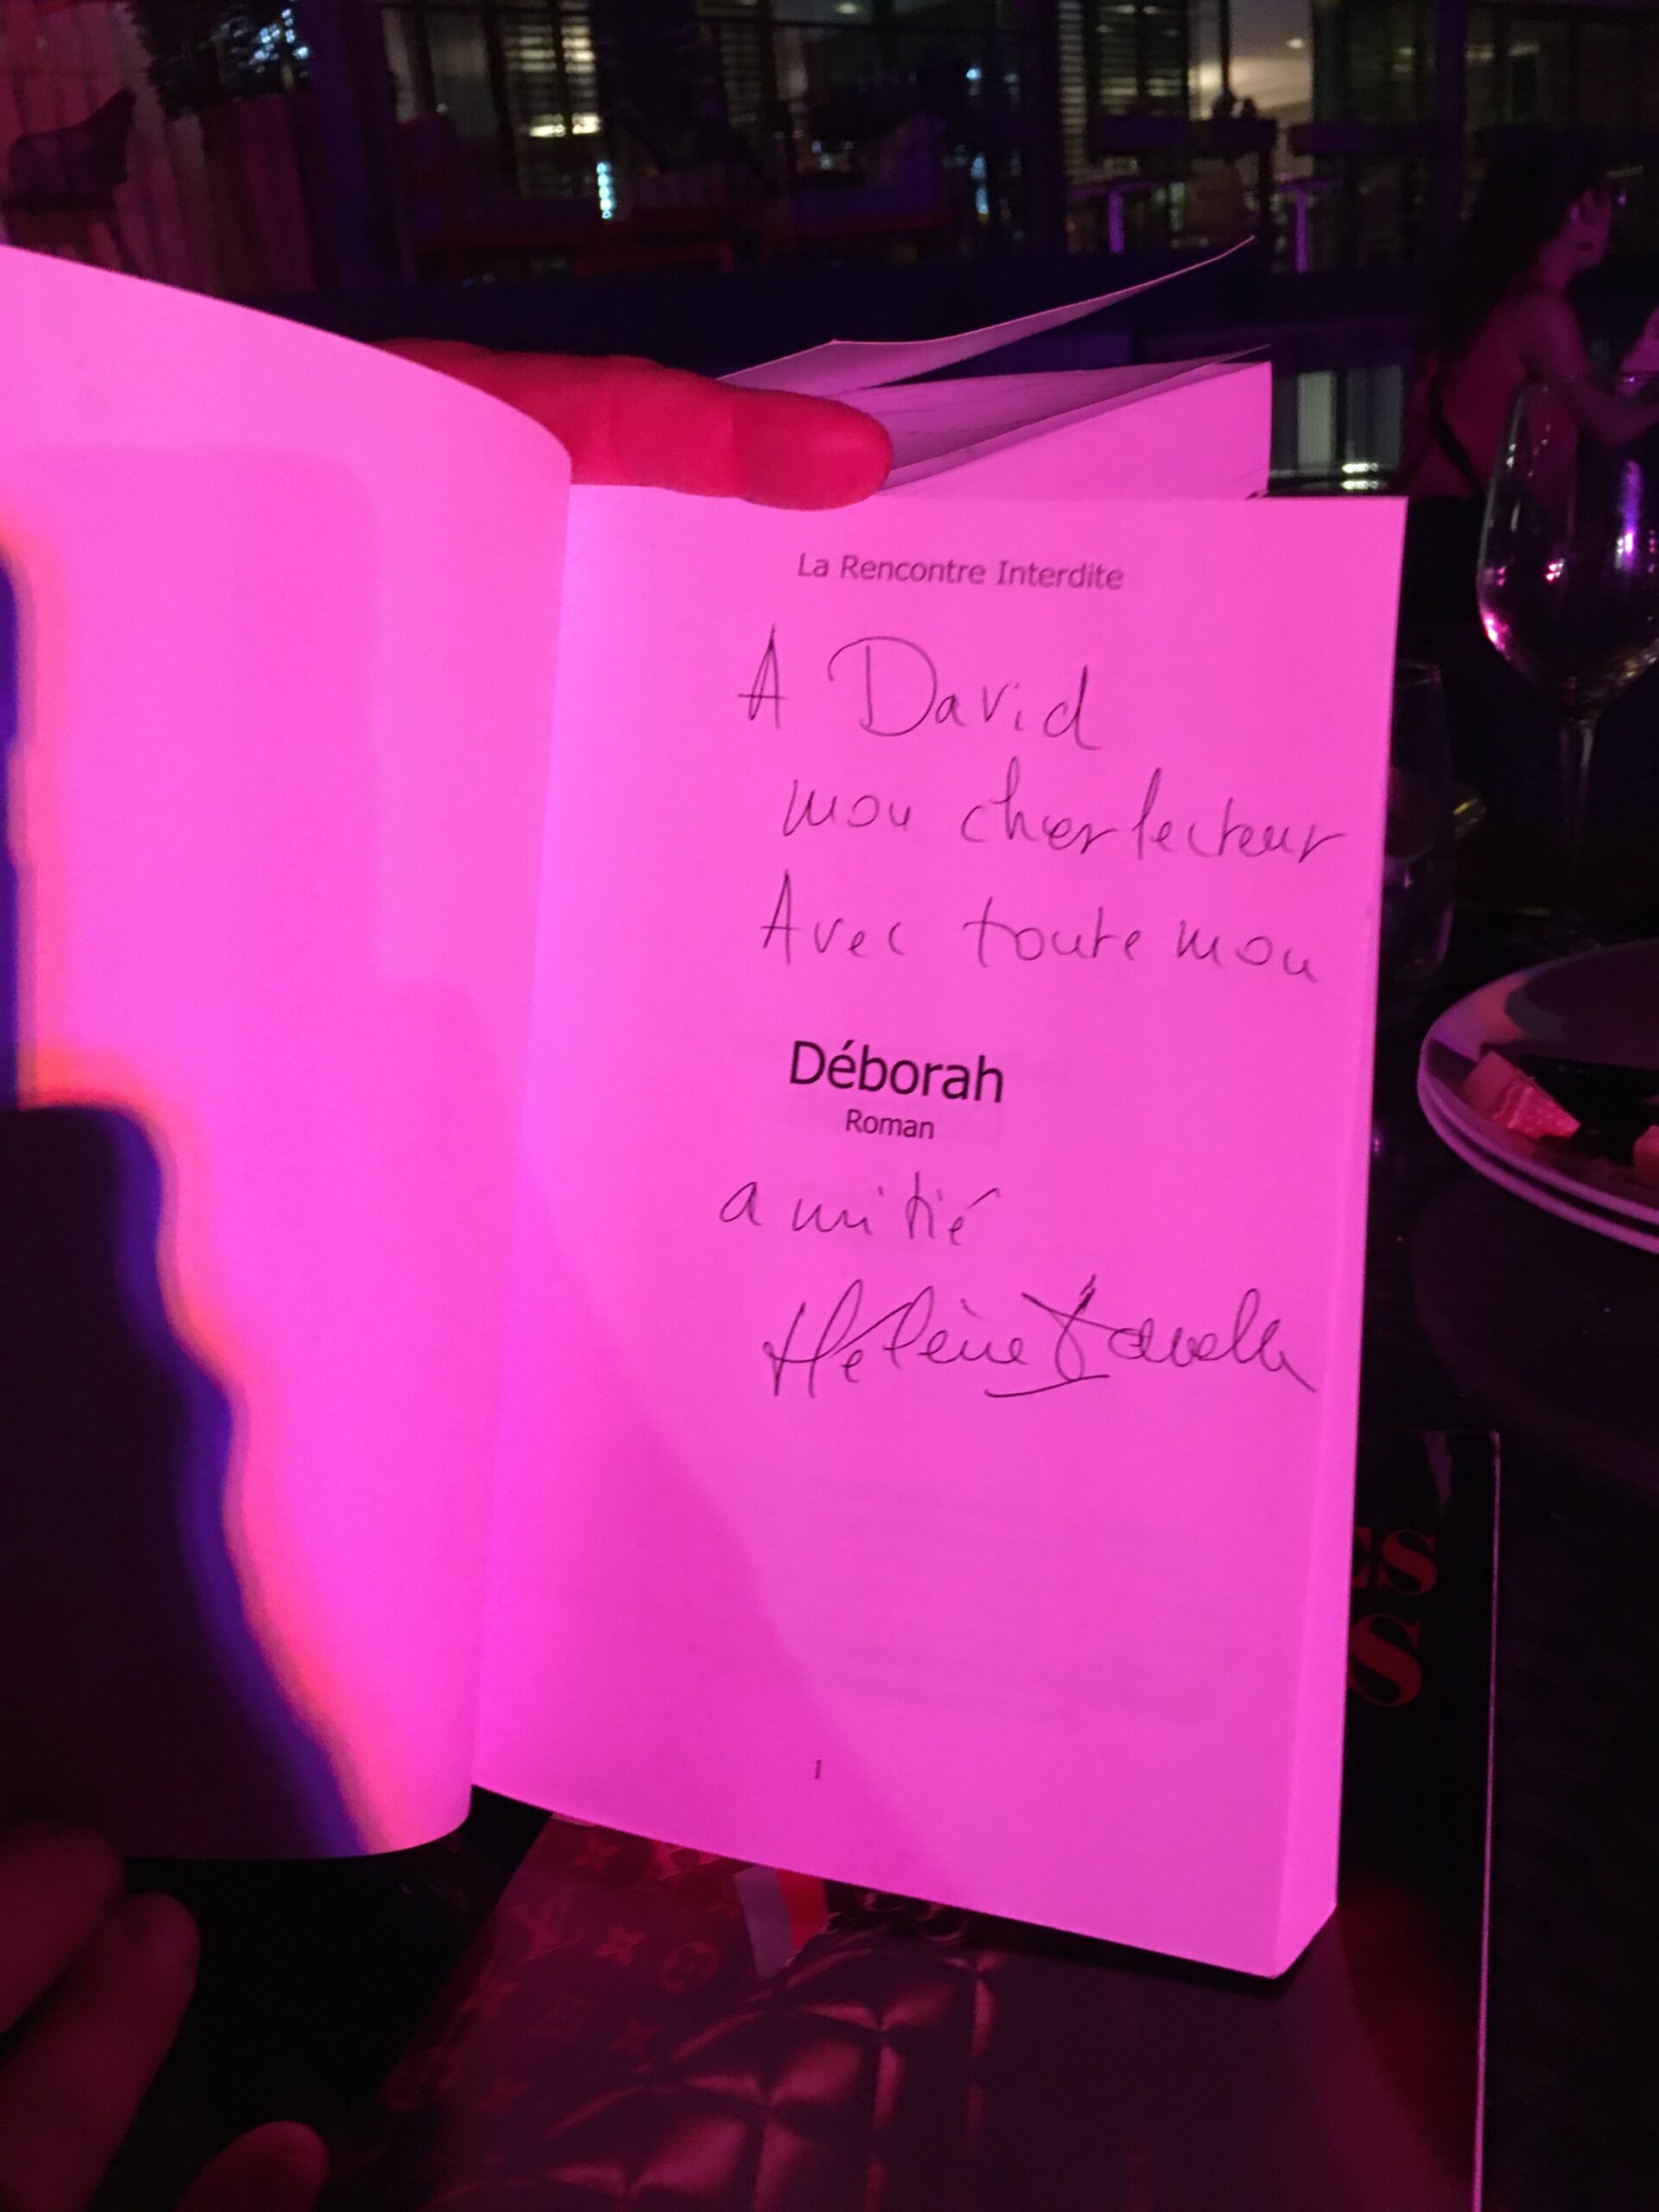 La Rencontre Interdite
A David
mon cher lecteur
Avec toute mon
Déborah
Roman
amitié
Hélène
1
ES
S